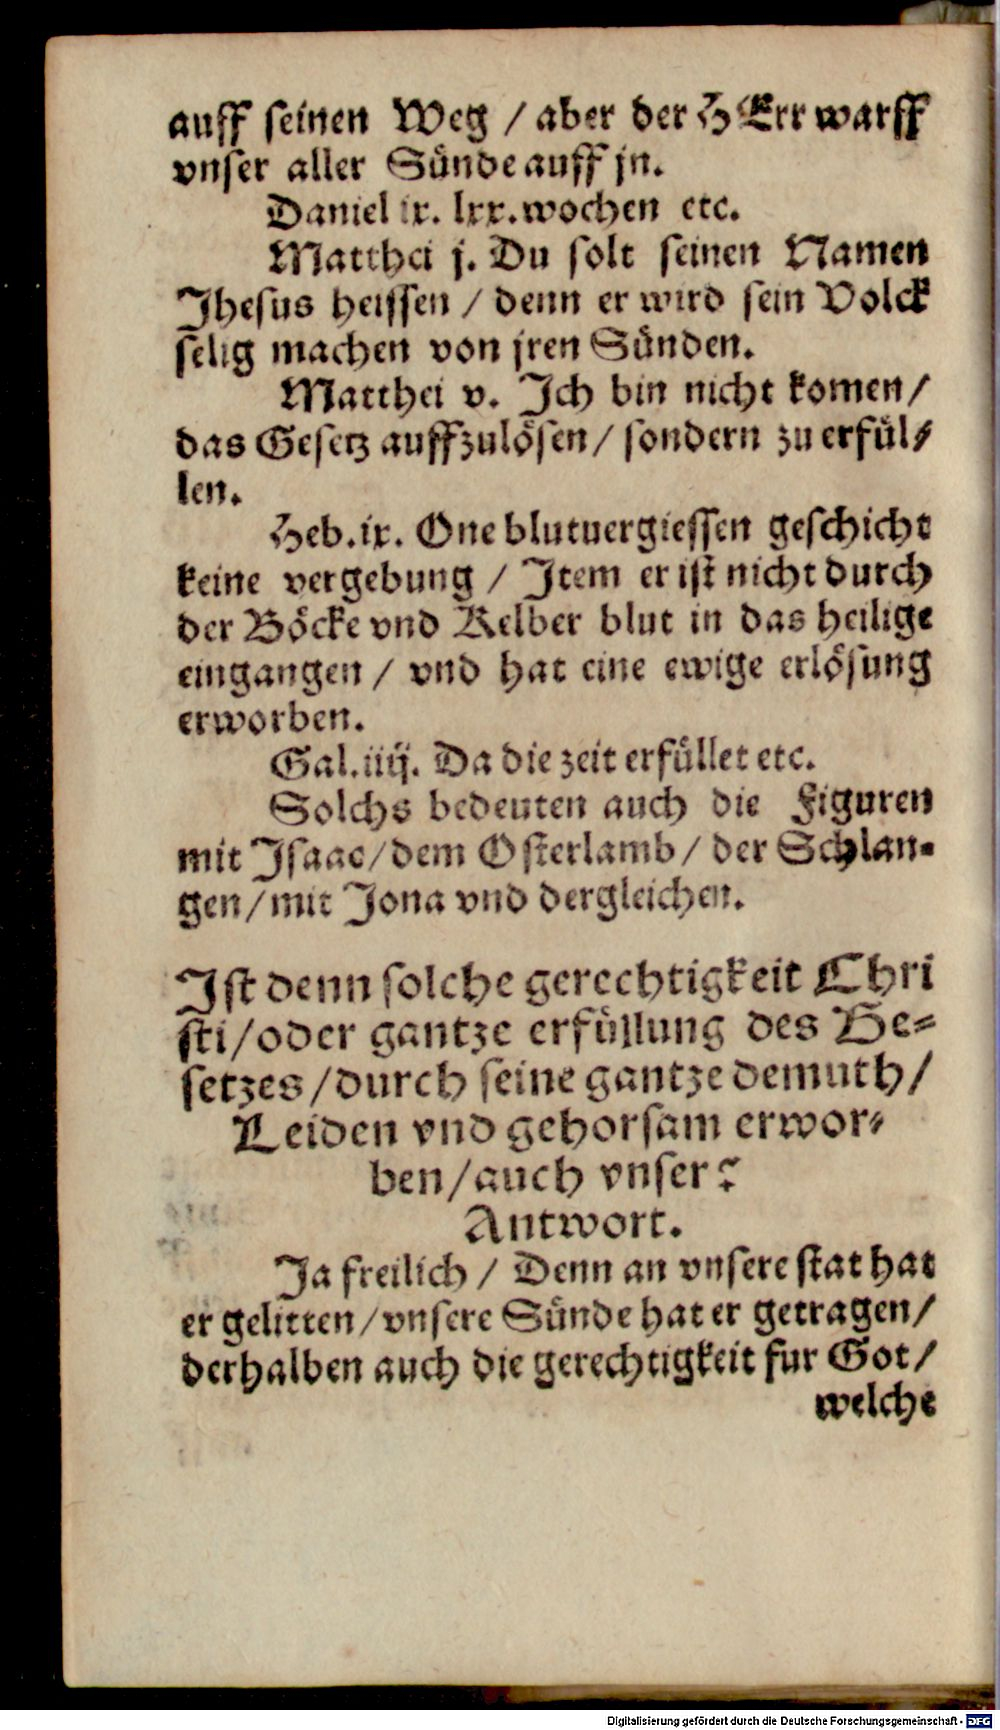 auff seinen Weg / aber der HErr warff
vnser aller Sünde auff jn.
Daniel ix. lxx. wochen etc.
Matthei j. Du solt seinen Namen
Jhesus heissen / denn er wird sein Volck
selig machen von jren Sünden.
Matthei v. Ich bin nicht komen /
das Gesetz auffzulösen / sondern zu erfül-
len.
Heb. ix. One blutuergiessen geschicht
keine vergebung / Item er ist nicht durch
der Böcke vnd Kelber blut in das heilige
eingangen / vnd hat eine ewige erlösung
erworben.
Gal. iiij. Da die zeit erfüllet etc.
Solchs bedeuten auch die Figuren
mit Isaac / dem Osterlamb / der Schlan-
gen / mit Jona vnd dergleichen.
Ist denn solche gerechtigkeit Chri
sti / oder gantze erfüllung des Ge-
setzes / durch seine gantze demuth /
Leiden vnd gehorsam erwor-
ben / auch vnser?
Antwort.
Ja freilich / Denn an vnsere stat hat
er gelitten / vnsere Sünde hat er getragen /
derhalben auch die gerechtigkeit fur Got /
welche
Digitalisierung gefördert durch die Deutsche Forschungsgemeinschaft - DFG